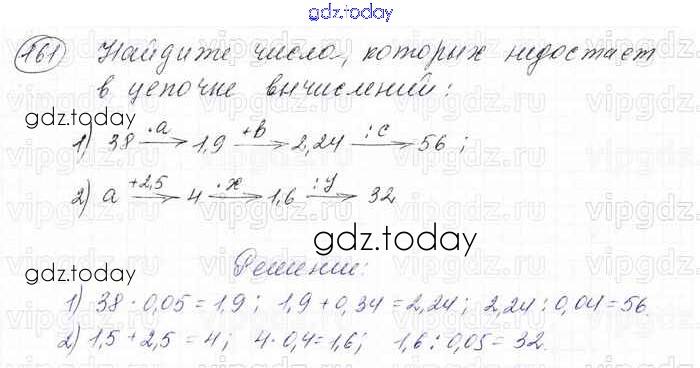 gdz.today
161 Найдите числа, которых недостает
в цепочке вычислений:
gdz.today
1) 38 —·a→ 1,9 —+b→ 2,24 —:c→ 56;
2) a —+2,5→ 4 —·x→ 1,6 —:y→ 32
gdz.today
gdz.today
Решение:
1) 38 · 0,05 = 1,9; 1,9 + 0,34 = 2,24; 2,24 : 0,04 = 56.
2) 1,5 + 2,5 = 4; 4 · 0,4 = 1,6; 1,6 : 0,05 = 32.